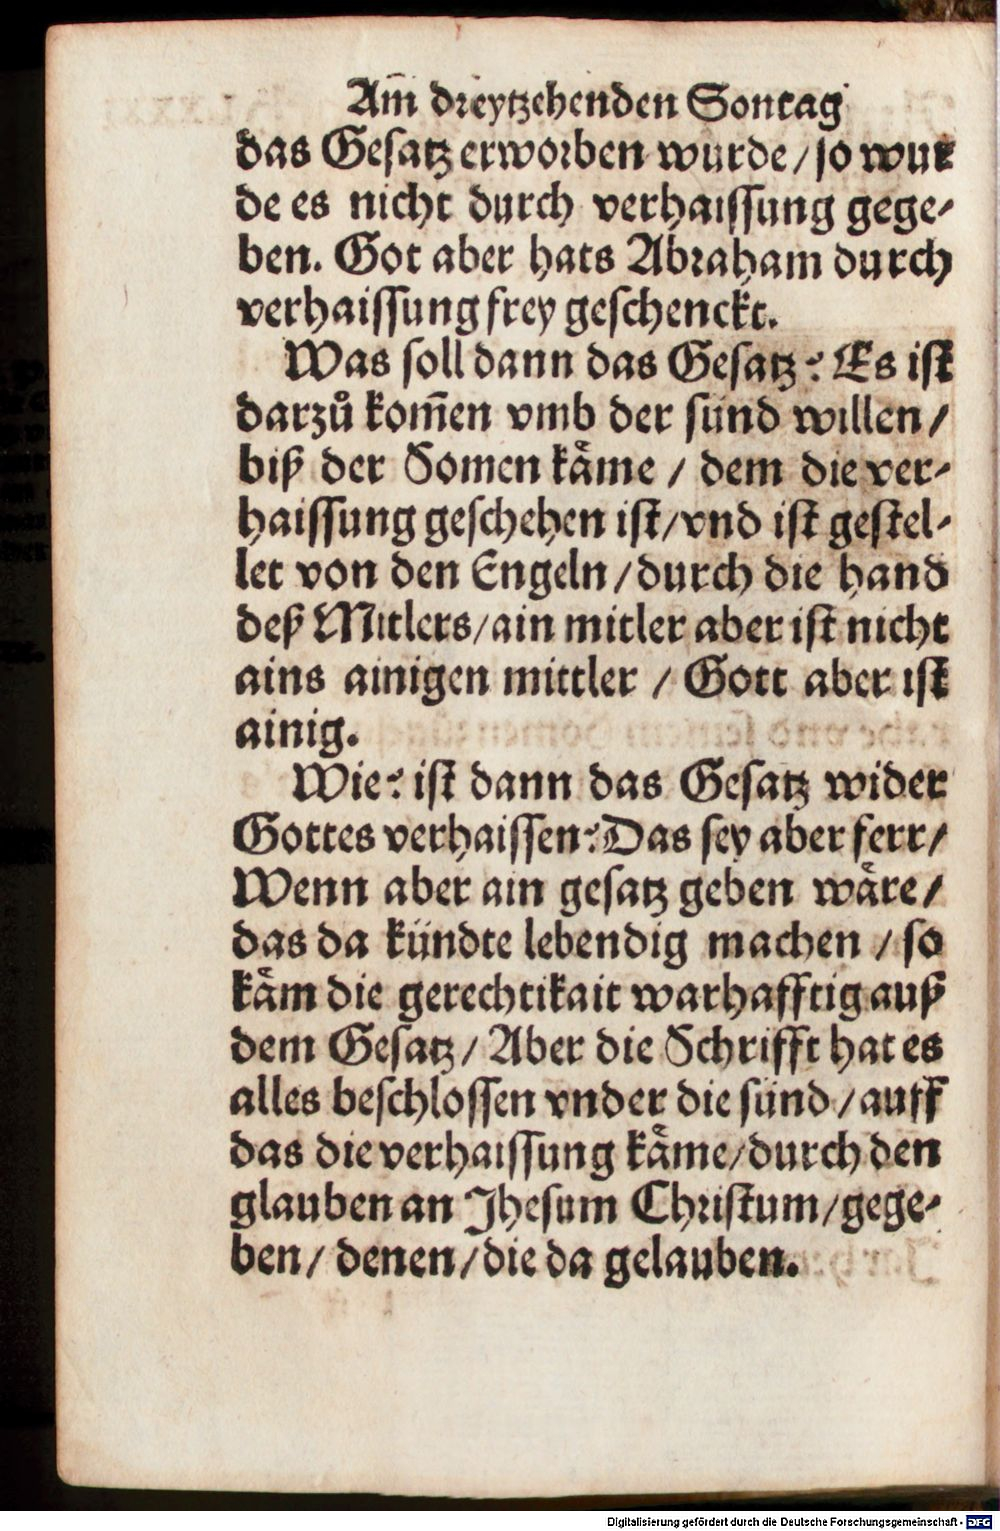 Am̄ dreytzehenden Sontag
das Gesatz erworben wurde / so wur
de es nicht durch verhaissung gege⸗
ben. Got aber hats Abraham durch
verhaissung frey geschenckt.
Was soll dann das Gesatz? Es ist
darzů kom̄en vmb der sünd willen /
biß der Somen kaͤme / dem die ver⸗
haissung geschehen ist / vnd ist gestel⸗
let von den Engeln / durch die hand
deß Mitlers / ain mitler aber ist nicht
ains ainigen mittler / Gott aber ist
ainig.
Wie? ist dann das Gesatz wider
Gottes verhaissen? Das sey aber ferr /
Wenn aber ain gesatz geben waͤre /
das da kündte lebendig machen / so
kaͤm die gerechtikait warhafftig auß
dem Gesatz / Aber die Schrifft hat es
alles beschlossen vnder die sünd / auff
das die verhaissung kaͤme / durch den
glauben an Jhesum Christum / gege⸗
ben / denen / die da gelauben.
Digitalisierung gefördert durch die Deutsche Forschungsgemeinschaft - DFG